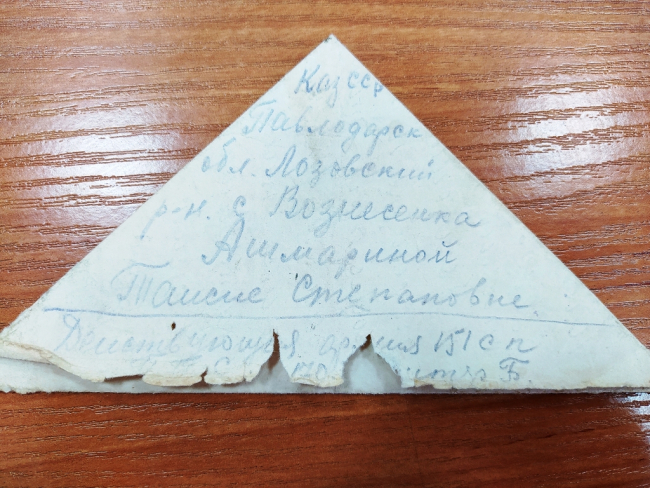 КазССР
Павлодарск
обл. Лозовский
р-н. с Вознесенка
Ашмариной
Таисие Степановне
Действующая армия 151 с п
Б.